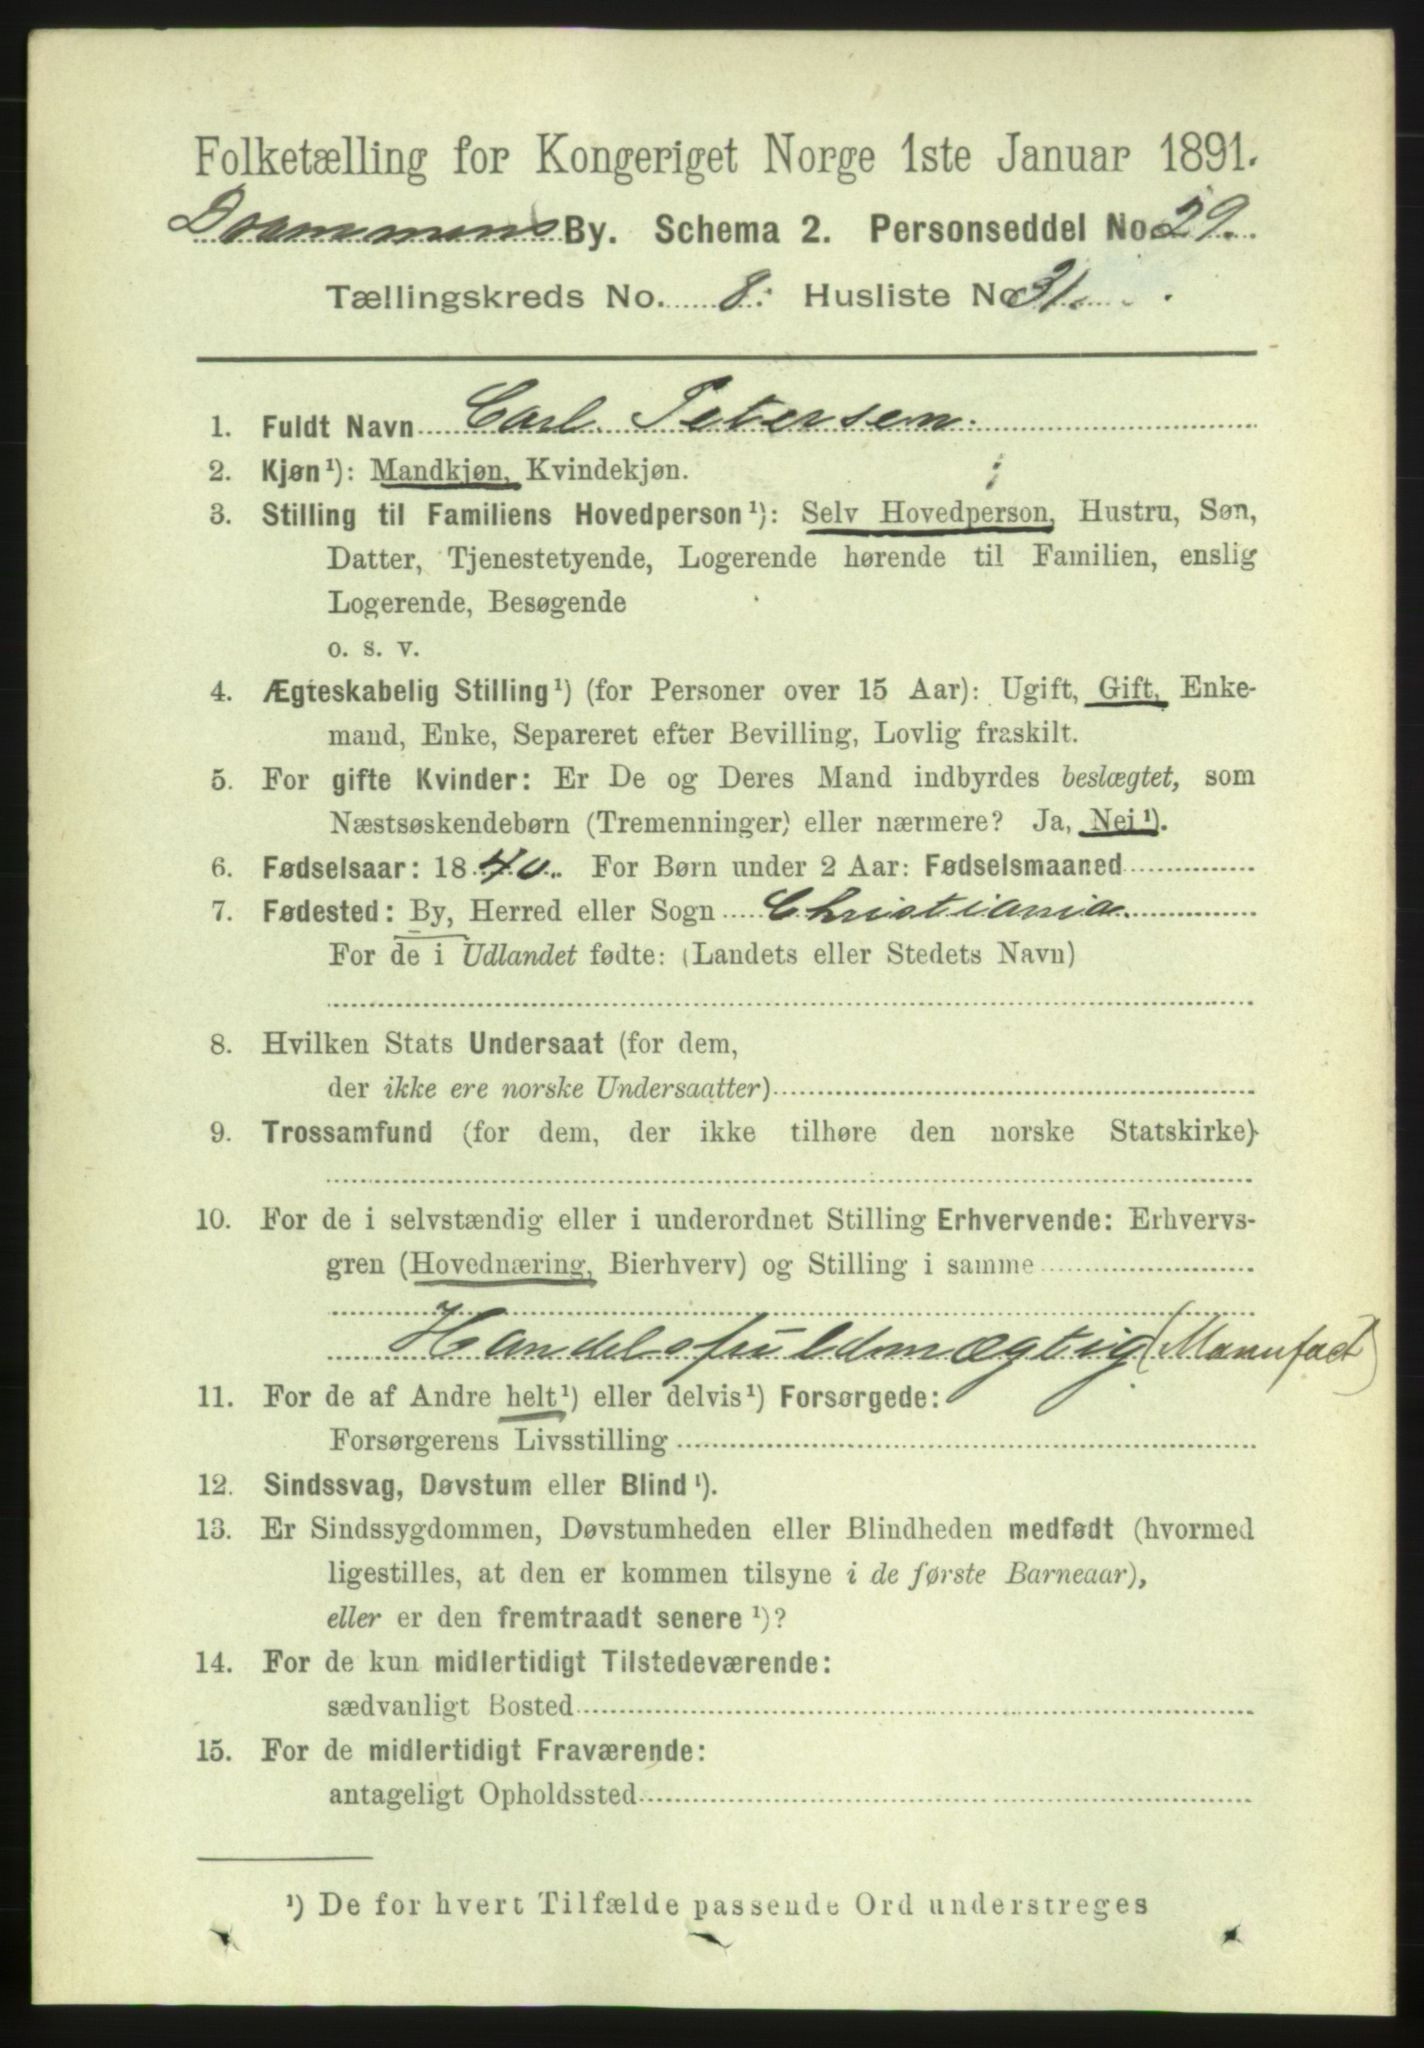 Folketælling for Kongeriget Norge 1ste Januar 1891.
Drammens By. Schema 2. Personseddel No. 29.
Tællingskreds No. 8. Husliste No. 31.
1. Fuldt Navn Carl Petersen.
2. Kjøn¹): Mandkjøn, Kvindekjøn.
3. Stilling til Familiens Hovedperson¹): Selv Hovedperson, Hustru, Søn,
Datter, Tjenestetyende, Logerende hørende til Familien, enslig
Logerende, Besøgende
o. s. v.
4. Ægteskabelig Stilling¹) (for Personer over 15 Aar): Ugift, Gift, Enke-
mand, Enke, Separeret efter Bevilling, Lovlig fraskilt.
5. For gifte Kvinder: Er De og Deres Mand indbyrdes beslægtet, som
Næstsøskendebørn (Tremenninger) eller nærmere? Ja, Nei¹).
6. Fødselsaar: 1840. For Børn under 2 Aar: Fødselsmaaned
7. Fødested: By, Herred eller Sogn Christiania.
For de i Udlandet fødte: (Landets eller Stedets Navn)
8. Hvilken Stats Undersaat (for dem,
der ikke ere norske Undersaatter)
9. Trossamfund (for dem, der ikke tilhøre den norske Statskirke)
10. For de i selvstændig eller i underordnet Stilling Erhvervende: Erhvervs-
gren (Hovednæring, Bierhverv) og Stilling i samme
Handelsfuldmægtig (Manufact)
11. For de af Andre helt¹) eller delvis¹) Forsørgede:
Forsørgerens Livsstilling
12. Sindssvag, Døvstum eller Blind¹).
13. Er Sindssygdommen, Døvstumheden eller Blindheden medfødt (hvormed
ligestilles, at den er kommen tilsyne i de første Barneaar),
eller er den fremtraadt senere¹)?
14. For de kun midlertidigt Tilstedeværende:
sædvanligt Bosted
15. For de midlertidigt Fraværende:
antageligt Opholdssted
¹) De for hvert Tilfælde passende Ord understreges